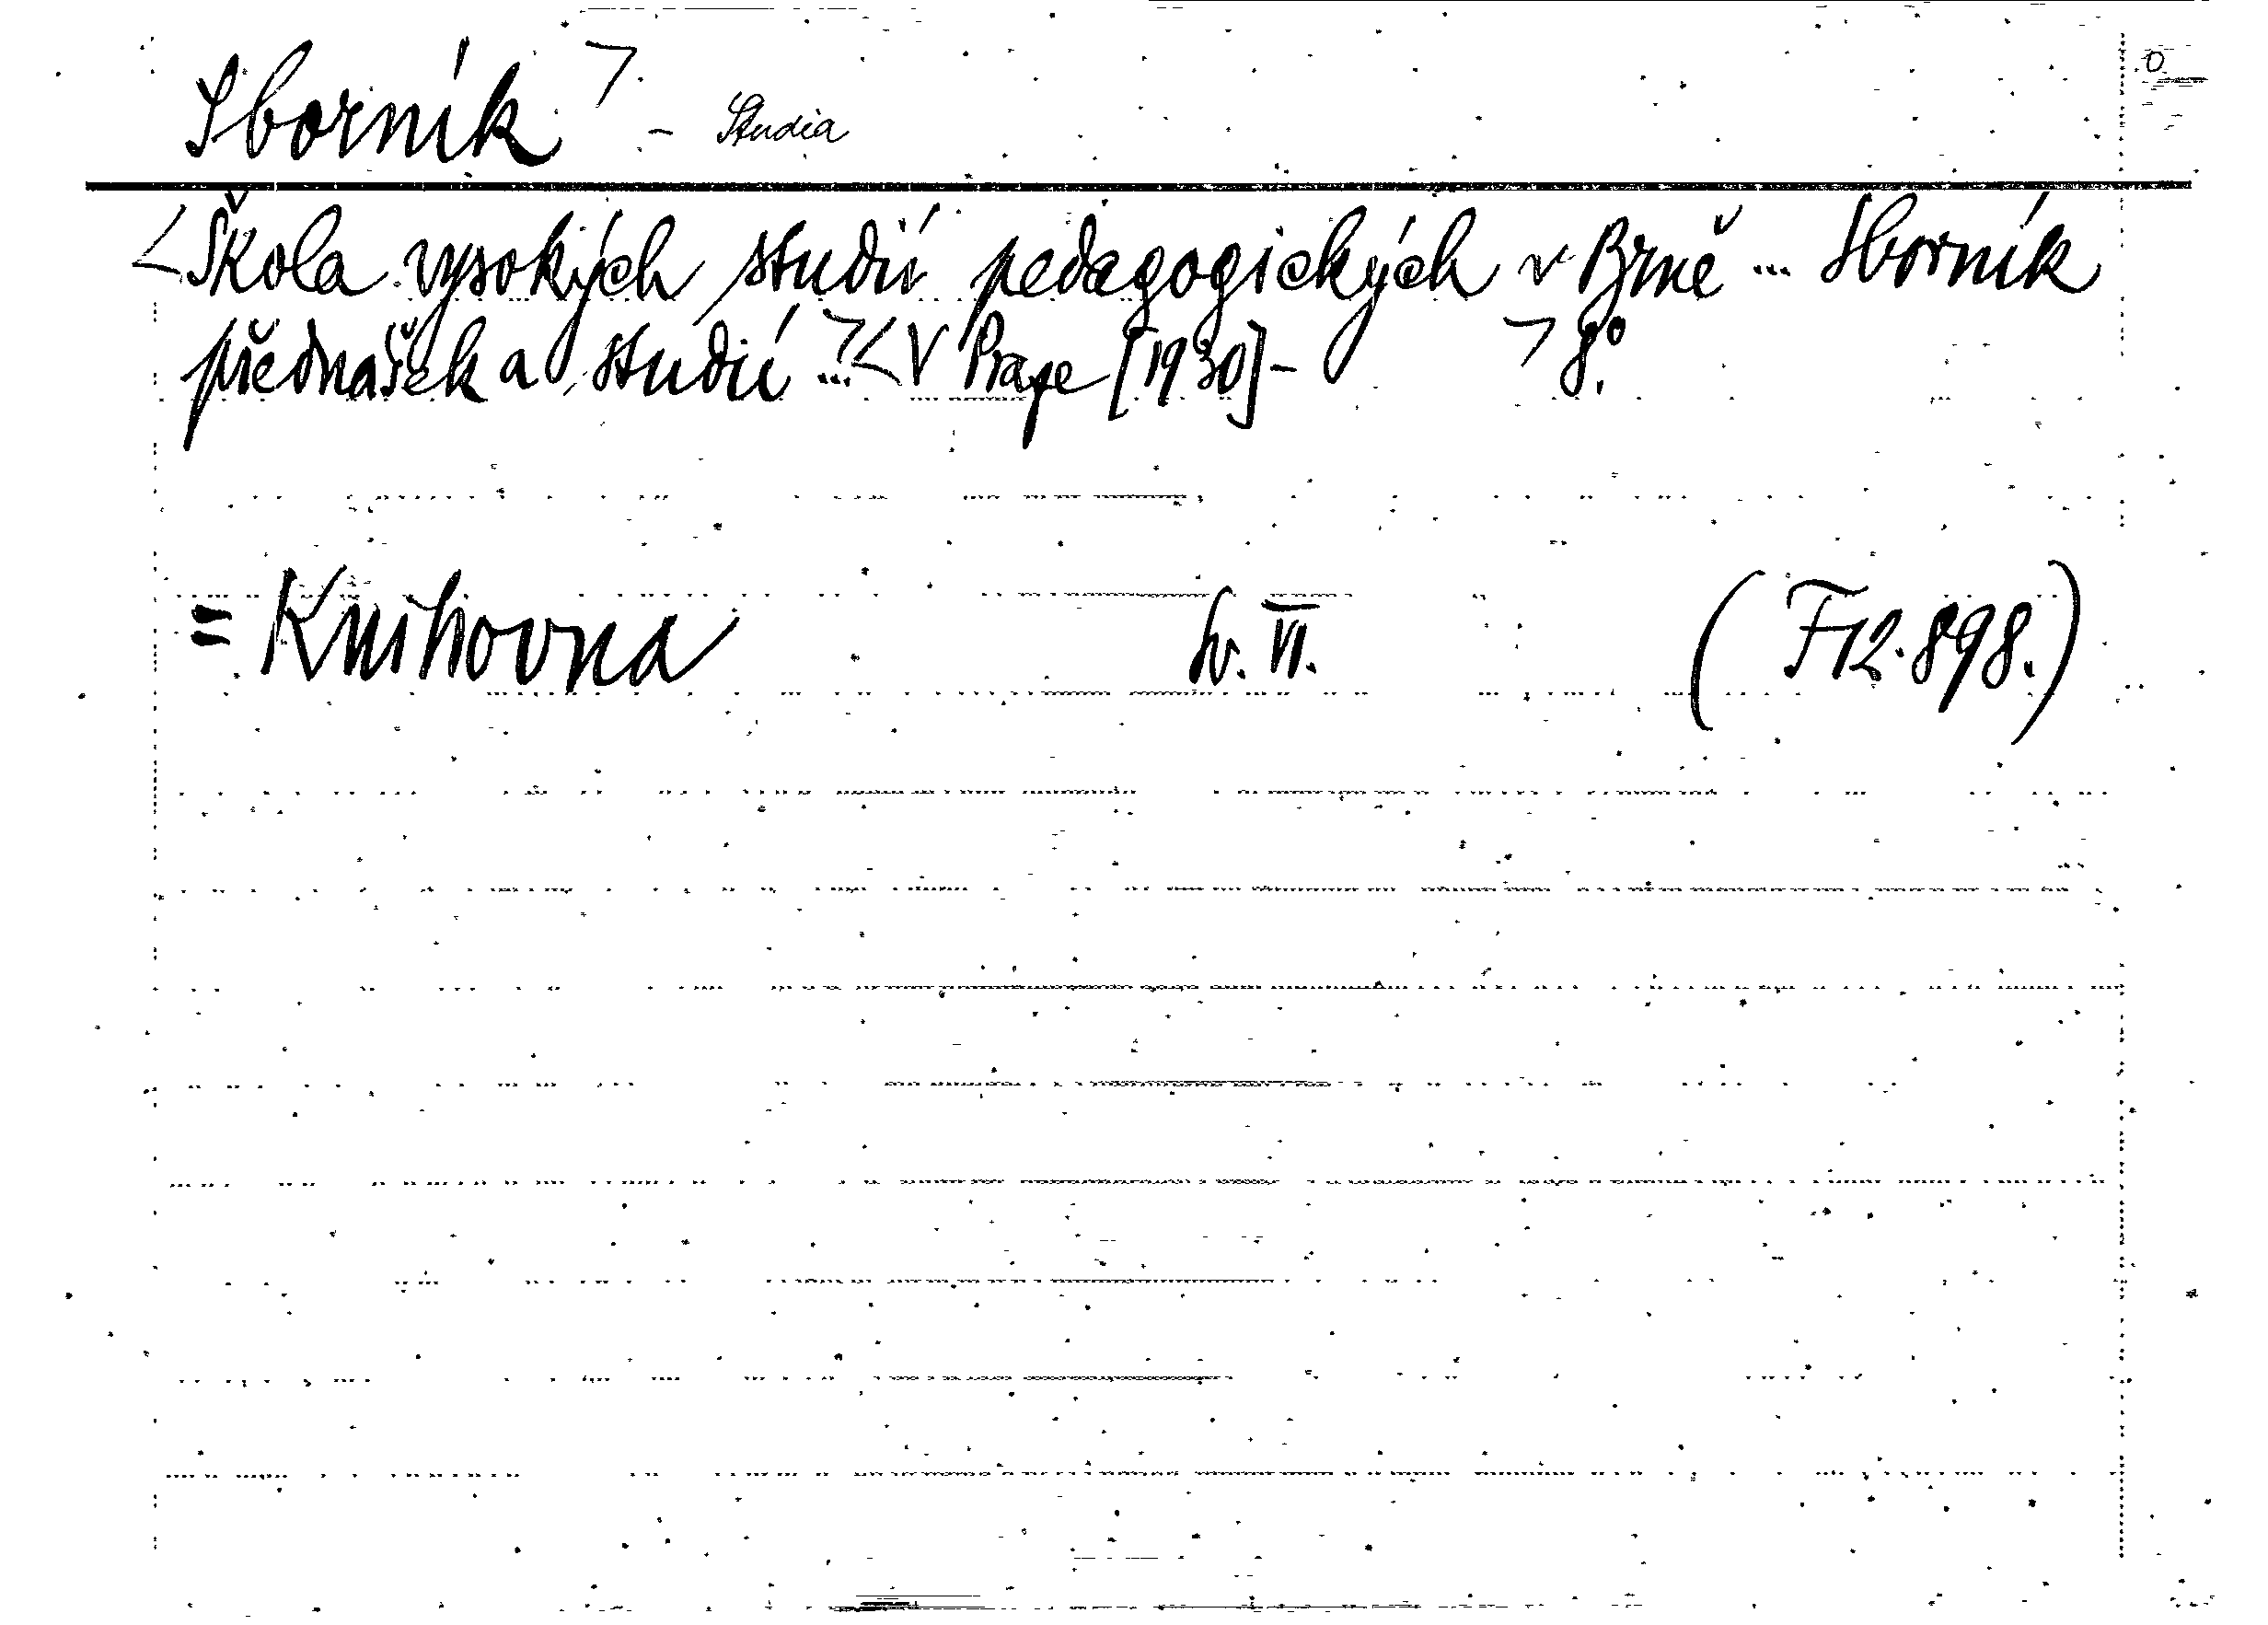 Sborník > - Studia
<Škola vysokých studií pedagogických v Brně ... Sborník
přednášek a studií ...>< V Praze [1930]- > 8°.
= Knihovna sv. VI. (F 12.898.)